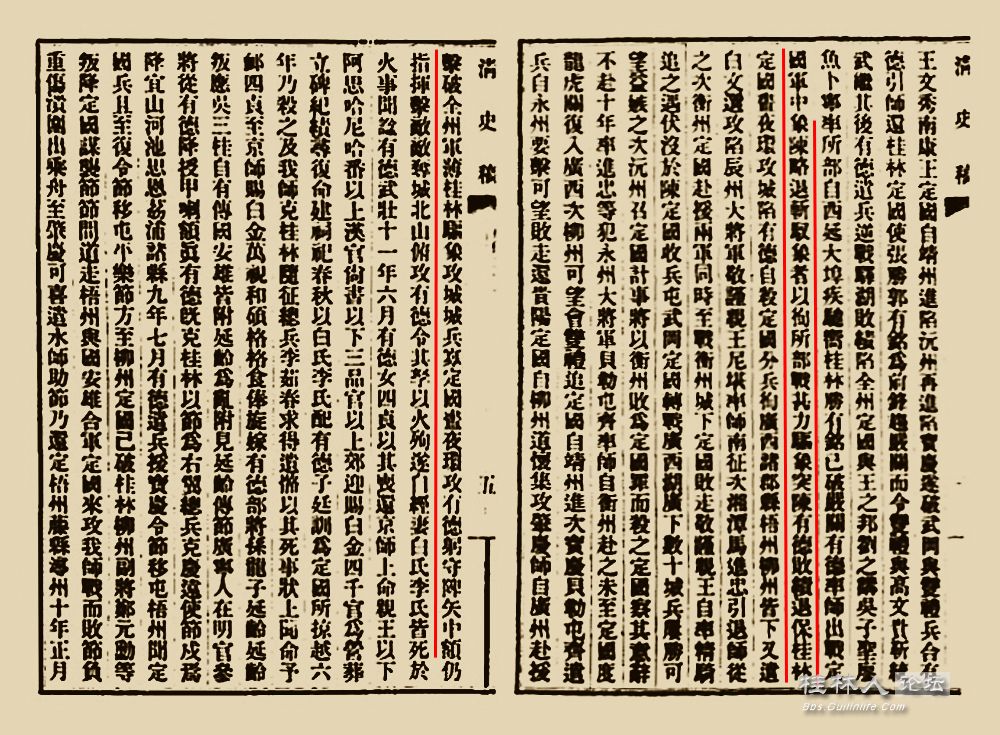 清史稿
王文秀南康王定國自靖州進陷沅州再進陷寶慶遂破武岡與雙禮兵合有
德引師還桂林定國使張勝郭有銘為前鋒趨嚴關而令雙禮與高文貴靳統
武繼其後有德遣兵逆戰驛湖敗績陷全州定國與王之邦劉之講吳子聖廖
魚卜寧率所部自西延大埠疾驅嚮桂林勝有銘已破嚴關有德率師出戰定
國軍中象陳略退斬馭象者以徇所部戰甚力驅象突陳有德敗績退保桂林
定國晝夜環攻城陷有德自殺定國分兵徇廣西諸郡縣梧州柳州皆下又遣
白文選攻陷辰州大將軍敬謹親王尼堪率師南征次湘潭馬進忠引退師從
之次衡州定國赴援兩軍同時至戰衡州城下定國敗走敬謹親王自率精騎
追之遇伏沒於陳定國收兵屯武岡定國轉戰廣西湖廣下數十城兵屢勝可
望益嫉之次沅州召定國計事將以衡州敗為定國罪而殺之定國察其意辭
不赴十年率進忠等犯永州大將軍貝勒屯齊率師自衡州赴之未至定國度
龍虎關復入廣西次柳州可望會雙禮追定國自靖州進次寶慶貝勒屯齊遣
兵自永州要擊可望敗走還貴陽定國自柳州道懷集攻肇慶師自廣州赴援
清史稿
五
擊破全州軍薄桂林驅象攻城城兵寡定國晝夜環攻有德躬守陴矢中額仍
指揮擊敵敵奪城北山俯攻有德令其孥以火殉遂自經妻白氏李氏皆死於
火事聞諡有德武壯十一年六月有德女四貞以其喪還京師上命親王以下
阿思哈尼哈番以上漢官尚書以下三品官以上郊迎賜白金四千官為營葬
立碑紀績尋復命建祠祀春秋以白氏李氏配有德子廷訓為定國所掠越六
年乃殺之及我師克桂林隨征總兵李茹春求得遺骼以其死事狀上聞命予
卹四貞至京師賜白金萬視和碩格格食俸旋嫁有德部將孫龍子延齡延齡
叛應吳三桂自有傳國安雄皆附延齡為亂附見延齡傳節廣寧人在明官參
將從有德降授甲喇額真有德既克桂林以節為右翼總兵克慶遠使節戍焉
降宜山河池思恩荔浦諸縣九年七月有德遣兵援寶慶令節移屯梧州聞定
國兵且至復令節移屯平樂節方至柳州定國已破桂林柳州副將鄭元勳等
叛降定國謀襲節節間道走梧州與國安雄合軍定國來攻我師戰而敗節負
重傷潰圍出乘舟至肇慶可喜遣水師助節乃還定梧州藤縣潯州十年正月
桂林人论坛
Bbs.Guilinlife.Com